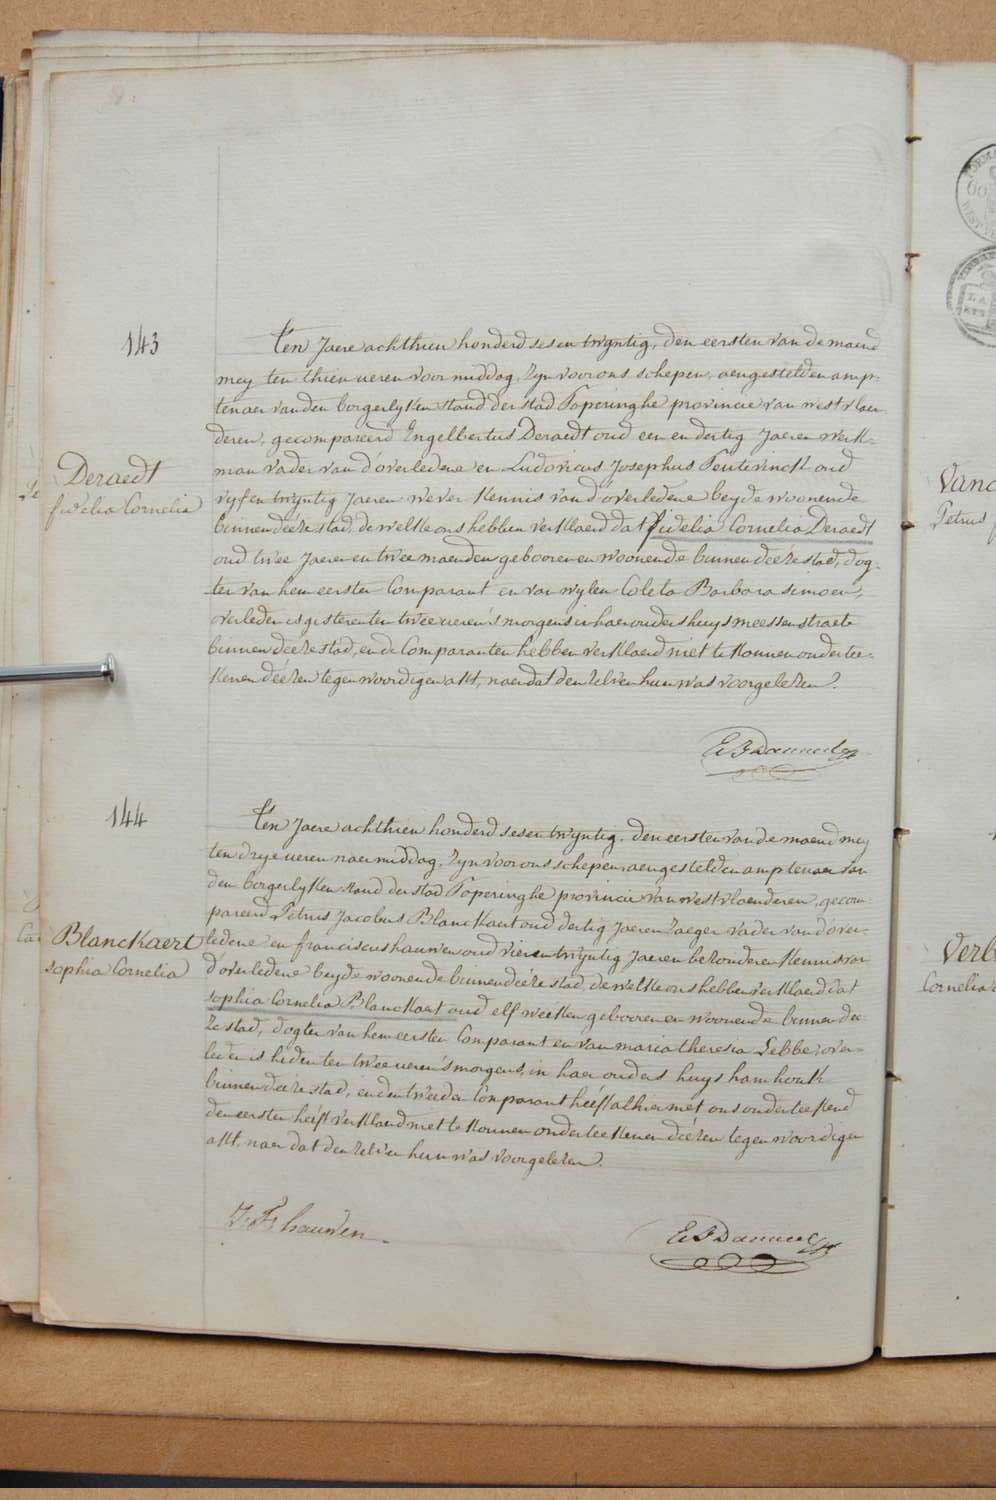 143
Deraedt
fidelia Cornelia
Ten Jaere achthien honderd sesentwyntig, den eersten van de maend
mey ten thien ueren voormiddag, zyn voor ons schepen, aengestelden amp-
tenaer van den borgerlyken stand der stad Poperinghe provincie van westvlaen
deren, gecompareerd Engelbertus Deraedt oud een en dertig Jaeren werk-
man vader van d'overledene en Ludovicus Josephus oud
vyfentwyntig Jaeren wever kennis van d'overledene beyde woonende
binnen deéze stad, de welke ons hebben verklaerd dat fidelia Cornelia Deraedt
oud twee Jaeren en twee maenden gebooren en woonende binnen deéze stad, dog-
ter van hem eersten Comparant en van wylen Coleta Barbara simoen,
overleden is gisteren ten twee ueren 's morgens in haer ouders huys meessenstraete
binnen deéze stad, en de Comparanten hebben verklaerd niet te konnen ondertee-
kenen déézen tegenwoordigen akt, naer dat den zelven hun was voorgelezen.
144
Blanckaert
sophia Cornelia
Ten Jaere achthien honderd sesentwyntig, den eersten van de maend mey
ten drye ueren naermiddag, zyn voor ons schepen, aengestelden amptenaer van
den borgerlyken stand der stad Poperinghe provincie van westvlaenderen, gecom-
pareerd Petrus Jacobus Blanckaert oud dertig Jaeren zaeger vader van d'over-
ledene en franciscus hauwen oud vierentwyntig Jaeren bezonderen kennis van
d'overledene beyde woonende binnen deéze stad, de welke ons hebben verklaerd dat
sophia Cornelia Blanckaert oud elf weéken gebooren en woonende binnen deé-
ze stad, dogter van hem eersten Comparant en van maria theresia Lebbe, over-
leden is heden ten twee ueren 's morgens, in haer ouders huys hamhoek
binnen deéze stad, en den tweeden Comparant heéft alhier met ons onderteekend
den eersten heéft verklaerd niet te konnen onderteekenen déézen tegenwoordigen
akt, naer dat den zelven hun was voorgelezen.
J: F: hauwen